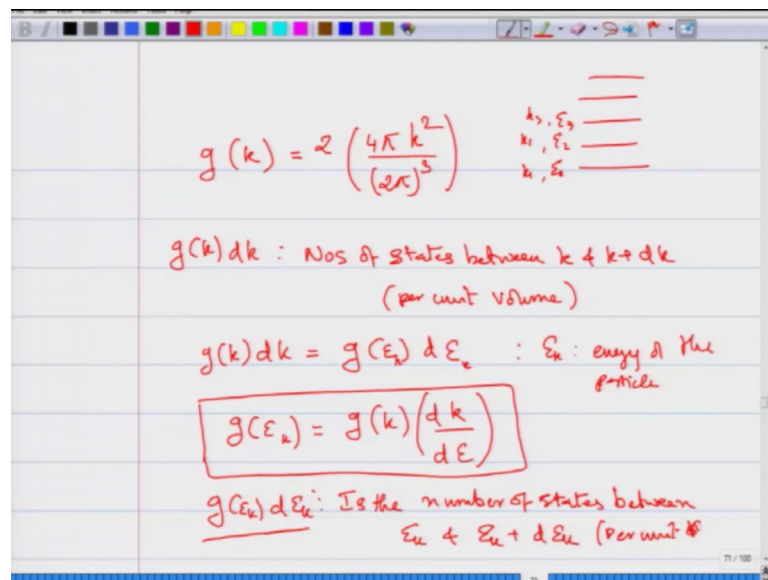 g(k) = 2 (4π k² / (2π)³)
k₃, ε₃
k₁, ε₂
k₁, ε₁
g(k) dk : Nos of states between k & k+dk
(per unit volume)
g(k) dk = g(εₖ) dεₖ : εₖ : energy of the
particle
g(εₖ) = g(k) (dk / dε)
g(εₖ) dεₖ : Is the number of states between
εₖ & εₖ + dεₖ (per unit
71 / 100